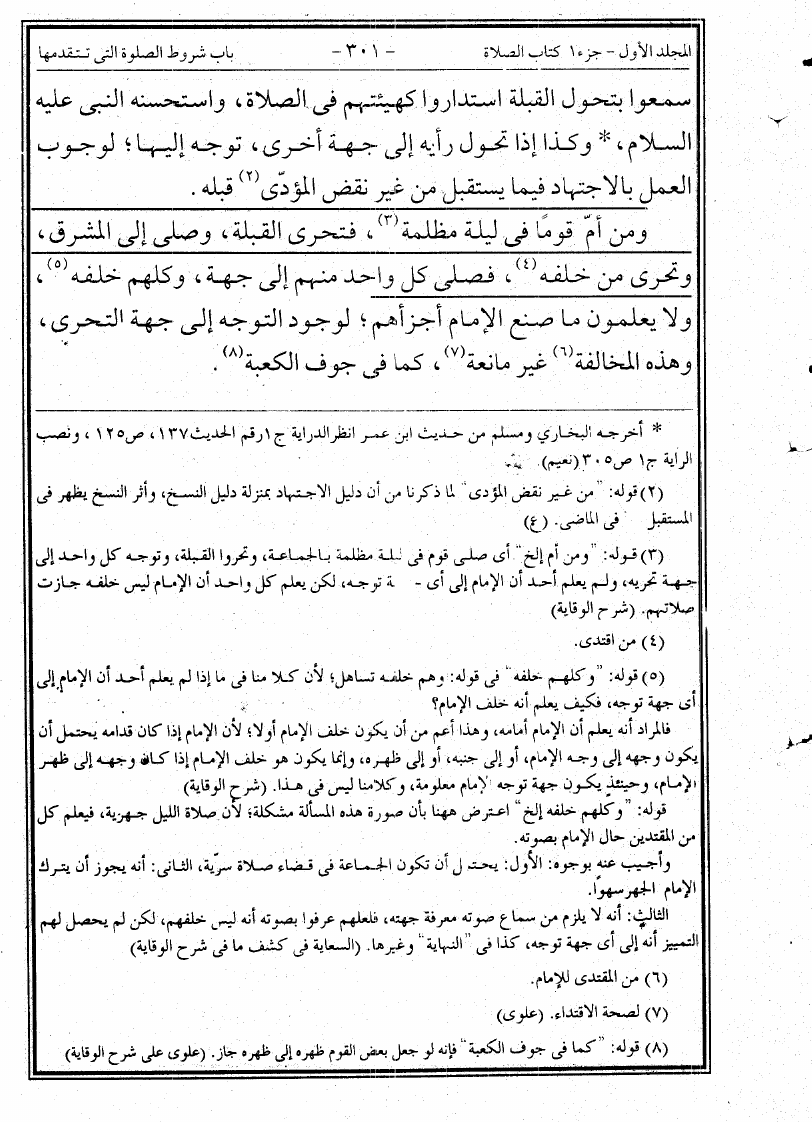 المجلد الأول - جزء ١ كتاب الصلاة - ٣٠١ - باب شروط الصلوة التى تتقدمها
سمعوا بتحول القبلة استداروا كهيئتهم فى الصلاة، واستحسنه النبى عليه
السلام، * وكذا إذا تحول رأيه إلى جهة أخرى، توجه إليها؛ لوجوب
العمل بالاجتهاد فيما يستقبل من غير نقض المؤدّى (٢) قبله.
ومن أمّ قومًا فى ليلة مظلمة (٣)، فتحرى القبلة، وصلى إلى المشرق،
وتحرى من خلفه (٤)، فصلى كل واحد منهم إلى جهة، وكلهم خلفه (٥)،
ولا يعلمون ما صنع الإمام أجزأهم؛ لوجود التوجه إلى جهة التحرى،
وهذه المخالفة (٦) غير مانعة (٧)، كما فى جوف الكعبة (٨).
* أخرجه البخاري ومسلم من حديث ابن عمر انظر الدراية ج١ رقم الحديث ١٣٧، ص١٢٥، ونصب
الراية ج١ ص٣٠٥ (نعيم).
(٢) قوله: "من غير نقض المؤدى" لما ذكرنا من أن دليل الاجتهاد بمنزلة دليل النسخ، وأثر النسخ يظهر فى
المستقبل فى الماضى. (ع)
(٣) قوله: "ومن أم إلخ" أى صلى قوم فى ليلة مظلمة بالجماعة، وتحروا القبلة، وتوجه كل واحد إلى
جهة تحريه، ولم يعلم أحد أن الإمام إلى أى توجه، لكن يعلم كل واحد أن الإمام ليس خلفه جازت
صلاتهم. (شرح الوقاية)
(٤) من اقتدى.
(٥) قوله: "وكلهم خلفه" فى قوله: وهم خلفه تساهل؛ لأن كلامنا فى ما إذا لم يعلم أحد أن الإمام إلى
أى جهة توجه، فكيف يعلم أنه خلف الإمام؟
فالمراد أنه يعلم أن الإمام أمامه، وهذا أعم من أن يكون خلف الإمام أولا؛ لأن الإمام إذا كان قدامه يحتمل أن
يكون وجهه إلى وجه الإمام، أو إلى جنبه، أو إلى ظهره، وإنما يكون هو خلف الإمام إذا كان وجهه إلى ظهر
الإمام، وحينئذ يكون جهة توجه الإمام معلومة، وكلامنا ليس فى هذا. (شرح الوقاية)
قوله: "وكلهم خلفه إلخ" اعترض ههنا بأن صورة هذه المسألة مشكلة؛ لأن صلاة الليل جهرية، فيعلم كل
من المقتدين حال الإمام بصوته.
وأجيب عنه بوجوه: الأول: يحتمل أن تكون الجماعة فى قضاء صلاة سرّية، الثانى: أنه يجوز أن يترك
الإمام الجهر سهوًا.
الثالث: أنه لا يلزم من سماع صوته معرفة جهته، فلعلهم عرفوا بصوته أنه ليس خلفهم، لكن لم يحصل لهم
التمييز أنه إلى أى جهة توجه، كذا فى "النهاية" وغيرها. (السعاية فى كشف ما فى شرح الوقاية)
(٦) من المقتدى للإمام.
(٧) لصحة الاقتداء. (علوى)
(٨) قوله: "كما فى جوف الكعبة" فإنه لو جعل بعض القوم ظهره إلى ظهره جاز. (علوى على شرح الوقاية)